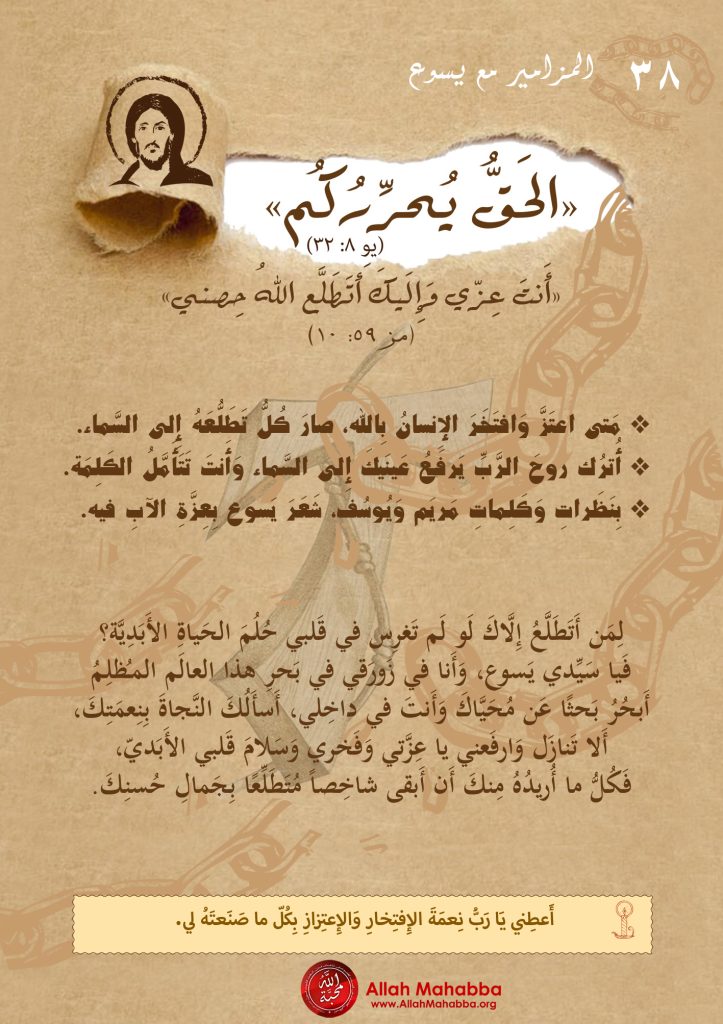 ٣٨ المزامير مع يسوع
«الحَقُّ يُحرِّرُكُم»
(يو ٨: ٣٢)
«أَنتَ عِزّي وَإِلَيكَ أَتَطَلَّع اللهُ حِصني»
(مز ٥٩: ١٠)
❖ مَتى اعتَزَّ وَافتَخَرَ الإِنسانُ بِالله، صارَ كُلُّ تَطَلُّعَهُ إِلى السَّماء.
❖ أُترُك روحَ الرَّبِّ يَرفَعُ عَينَيكَ إِلى السَّماء وَأَنتَ تَتَأَمَّلُ الكَلِمَة.
❖ بِنَظَراتِ وَكَلِماتِ مَريم وَيُوسُف، شَعَرَ يسوع بِعِزَّةِ الآبِ فيه.
لِمَن أَتَطَلَّعُ إِلَّاكَ لَو لَم تَغرِس في قَلبي حُلُمَ الحَياةِ الأَبَدِيَّة؟
فَيا سَيِّدي يَسوع، وَأَنا في زَورَقي في بَحرِ هذا العالَم المُظلِمُ
أَبحُرُ بَحثًا عَن مُحَيَّاكَ وَأَنتَ في داخِلي، أَسأَلُكَ النَّجاةَ بِنِعمَتكَ،
أَلا تَنازَل وَارفَعني يا عِزَّتي وَفَخري وَسَلامَ قَلبي الأَبَديّ،
فَكُلُّ ما أُريدُهُ مِنكَ أَن أَبقى شاخِصاً مُتَطَلِّعًا بِجَمالِ حُسنِكَ.
أَعطِني يَا رَبُّ نِعمَةَ الإِفتِخارِ وَالإِعتِزازِ بِكُلّ ما صَنَعتَهُ لي.
الله محبّة
Allah Mahabba
www.AllahMahabba.org